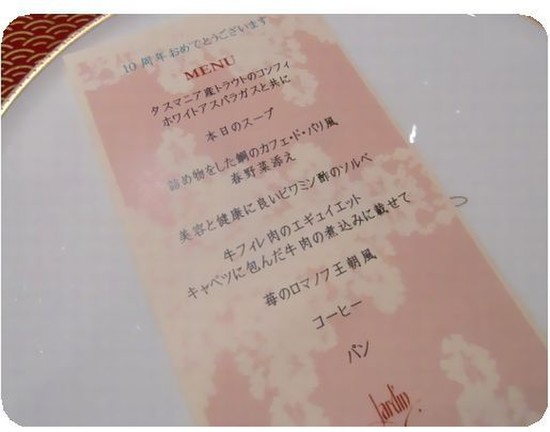 10周年おめでとうございます
MENU
タスマニア産トラウトのコンフィ
ホワイトアスパラガスと共に
本日のスープ
詰め物をした鯛のカフェ・ド・パリ風
春野菜添え
美容と健康に良いビワミン酢のソルベ
牛フィレ肉のエギュイエット
キャベツに包んだ牛肉の煮込みに載せて
苺のロマノフ王朝風
コーヒー
パン
Jardin